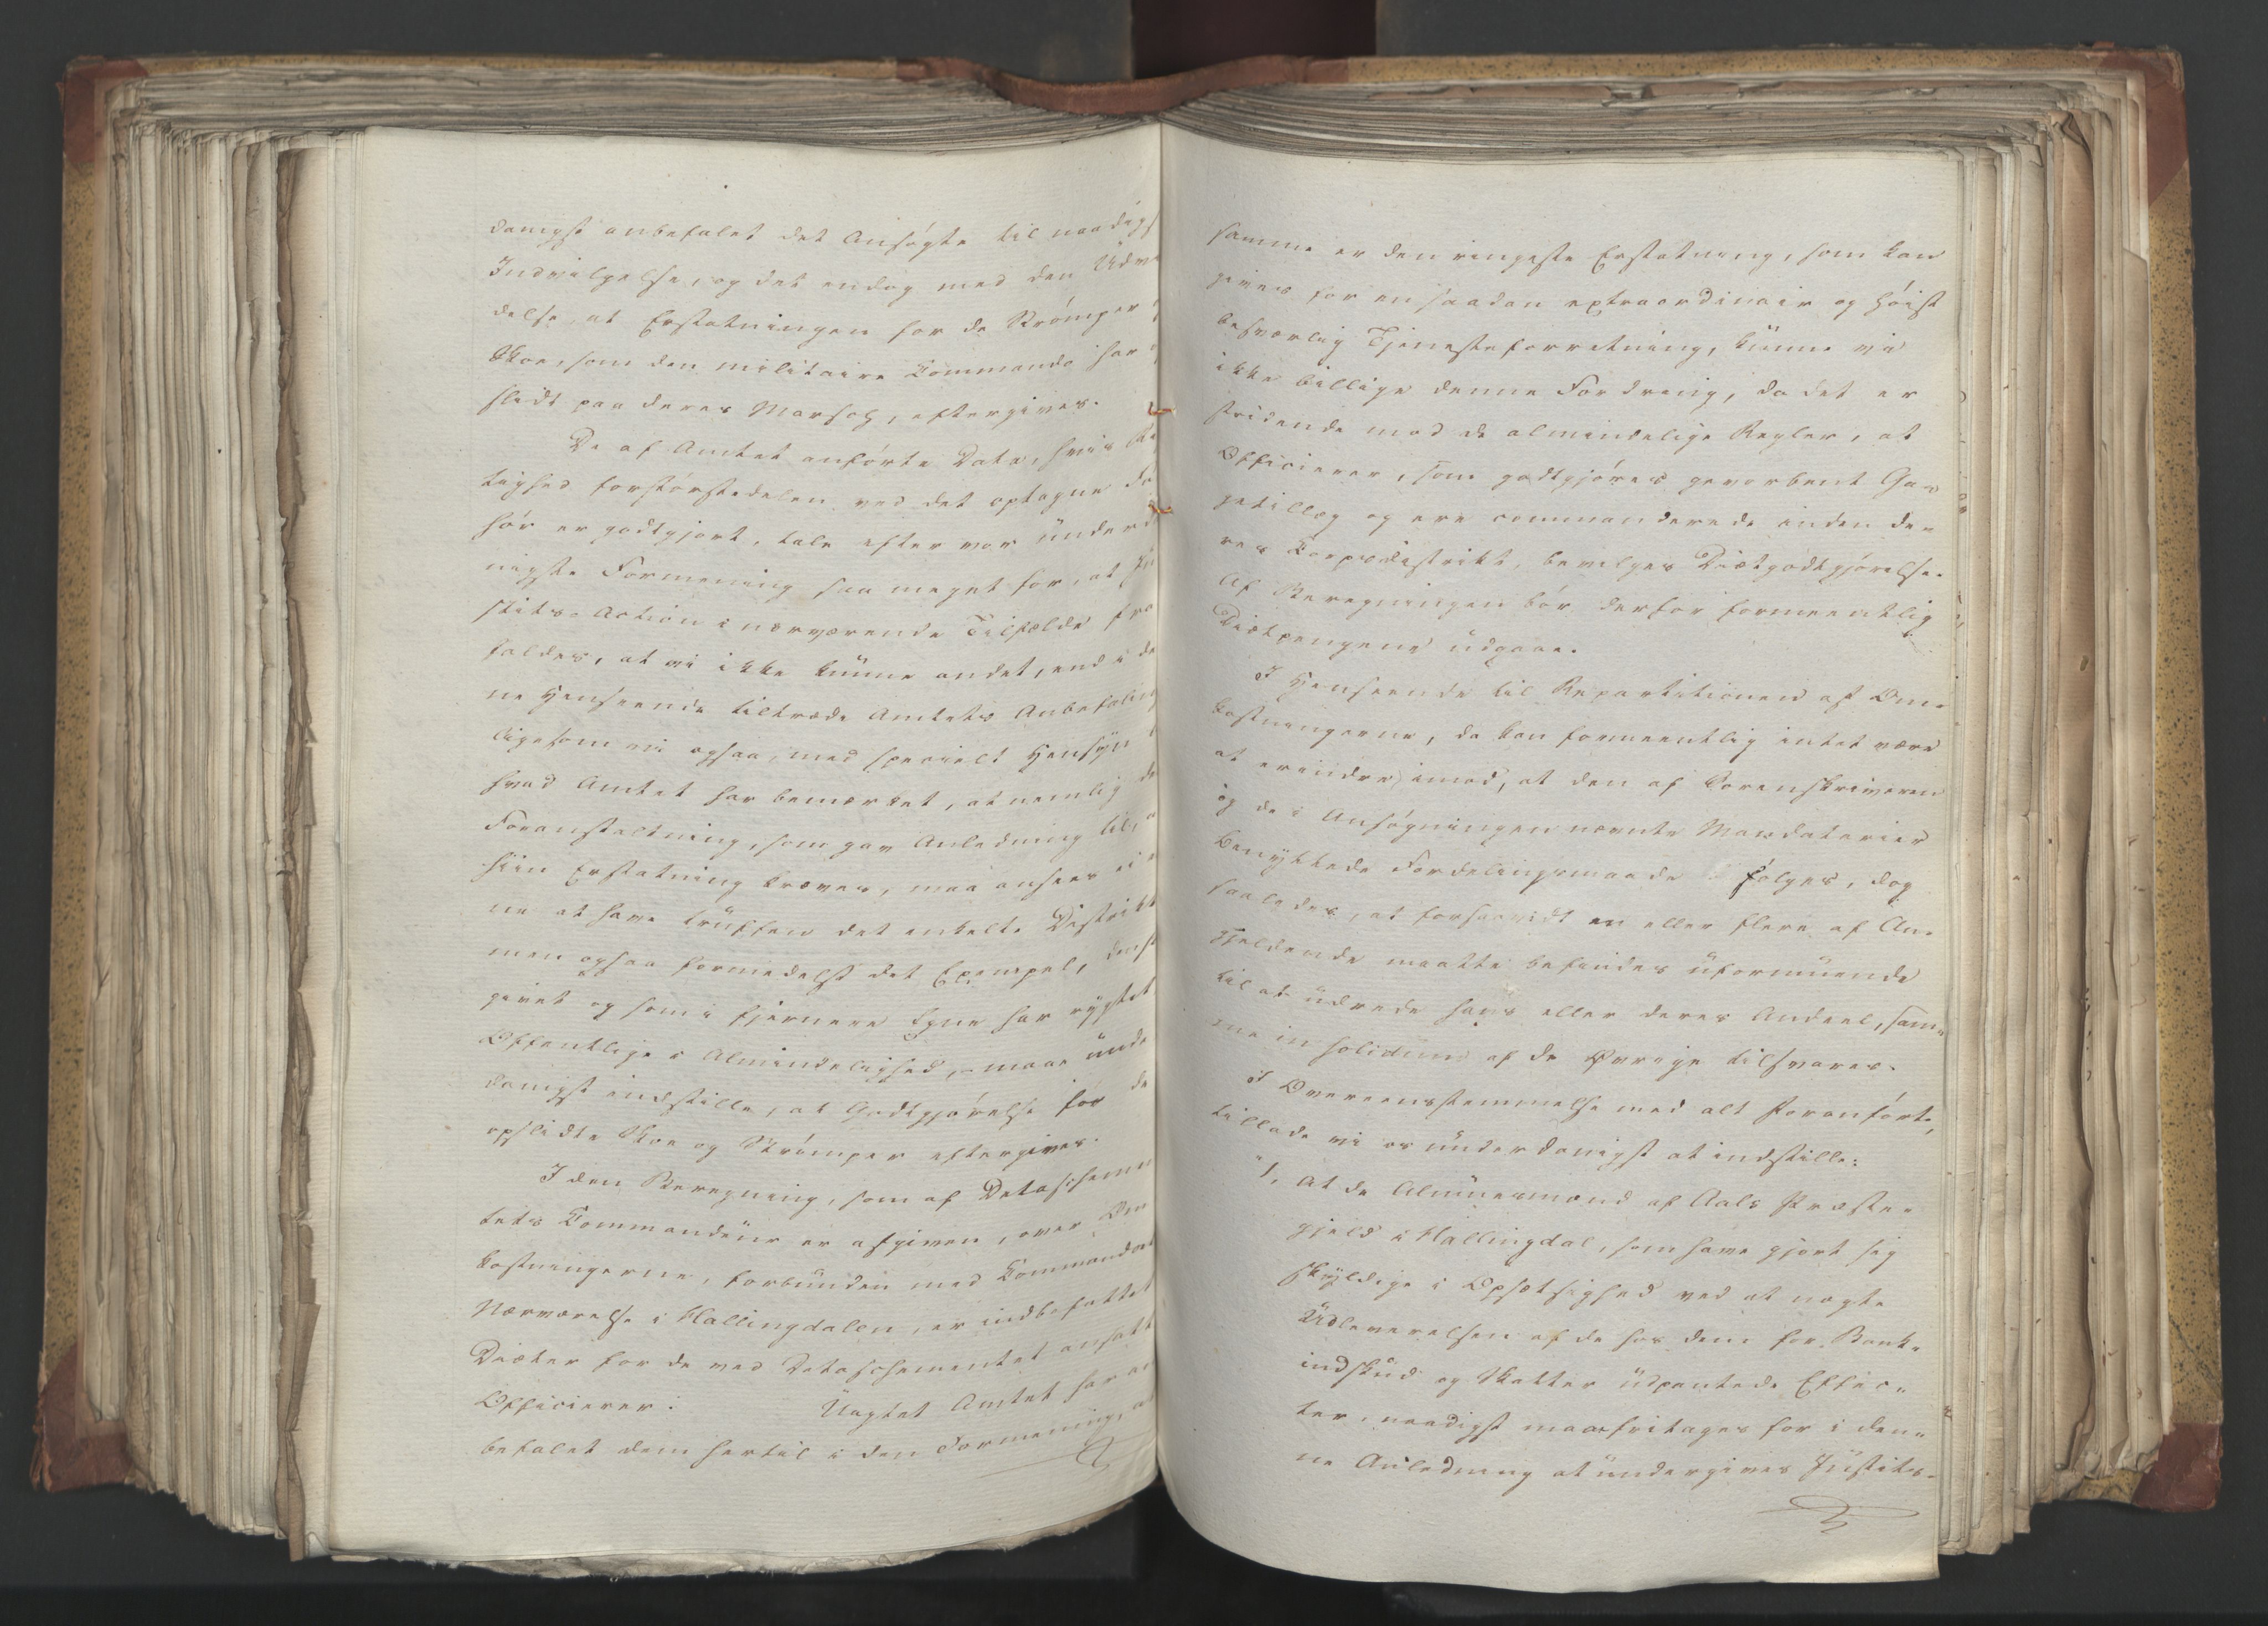 danigst anbefalet det Ansøgte til naadigs
Indvilgelse, og det endog med den Udvi
delse, at Erstatningen for de Strømper
Skoe, som den militaire Commando har
slidt paa deres Marsch, eftergives.
De af Amtet anførte Data, hvis
tighed forstørstedelen ved det optagne
hør er godtgjort, tale efter vor underd
nigste Formening saa meget for, at Ju
stits-Action i nærværende Tilfælde fra
faldes, at vi ikke kunne andet, end i de
ne Henseende tiltræde Amtets Anbefaling
ligesom vi ogsaa, med specielt Hensyn
hvad Amtet har bemærket, at nemlig de
Foranstaltning, som gav Anledning til,
hiin Erstatning kræves, maa ansees ei
ne at have truffen det enkelte Distrikt
men ogsaa formedelst det Exempel, det
givet og som i fjernere Egne har vygtet
Offentlige i Almindelighed, maae unde
danigst indstille, at Godtgjørelse for de
opslidte Skoe og Strømper eftergives.
I den Beregning, som af Detaschemen
tets Commandeur er afgiven, over Om
kostningerne, forbunden med Commandoets
Nærværelse i Hallingdalen, er indbefattet
Diæter for de ved Detaschementet ansatte
Officierer. Uagtet Amtet har an
befalet dem hertil i den Formening, at
samme er den ringeste Erstatning, som kan
gives for en saadan extraordinair og høist
besværlig Tjenesteforretning, kunne vi
ikke billige denne Fordring, da det er
stridende mod de almindelige Regler, at
Officierer, som godtgjøres gevorbent Ga-
getillæg og ere commanderede inden de-
res Corpsdistrikt, bevilges Diætgodtgjørelse.
Af Beregningen bør derfor formeentlig
Diætpengene udgaae.
I Henseende til Repartitionen af Om-
kostningerne, da kan formeentlig intet være
at erindre imod, at den af Sorenskriveren
og de i Ansøgningen nævnte Mandatarier
benyttede Fordelingsmaade følges, dog
saaledes, at forsaavidt en eller flere af An-
gjeldende maatte befindes uformuende
til at udrede hans eller deres Andeel, sam-
me in solidum af de Øvrige tilsvares.
I Overeensstemmelse med alt Foranførte,
tillade vi os underdanigst at indstille:
"1, At de Almuesmænd af Aals Præste-
gjeld i Hallingdal, som have gjort sig
skyldige i Opsætsighed ved at nægte
Udleverelsen af de hos dem for Bank-
indskud og Skatter udpantede Effec-
ter, naadigst maae fritages for i den-
ne Anledning at undergives Justits-